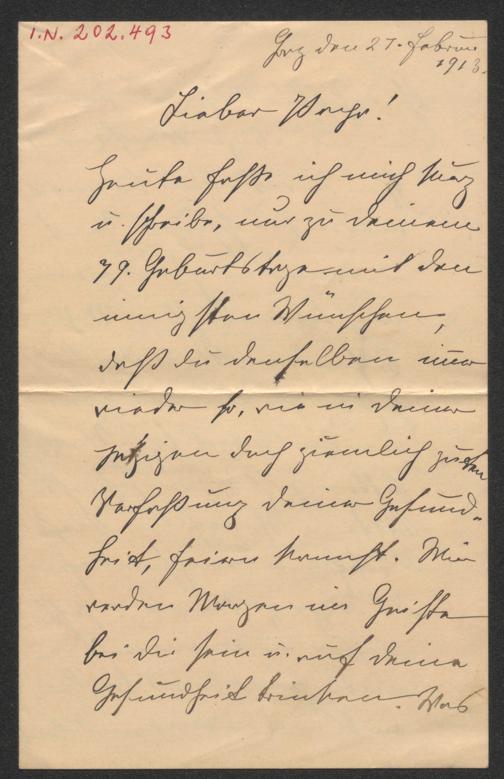 I.N. 202.493
Graz den 27. Februar
1913.
Lieber Papa!
Heute fasse ich mich kurz
u. schreibe, nur zu Deinem
79. Geburtstage mit den
innigsten Wünschen,
daß du denselben immer
wieder so, wie in Deiner
jetzigen doch ziemlich guten
Verfassung Deiner Gesund-
heit, feiern kannst. Wir
werden Morgen im Geiste
bei Dir sein u. auf Deine
Gesundheit trinken. Was